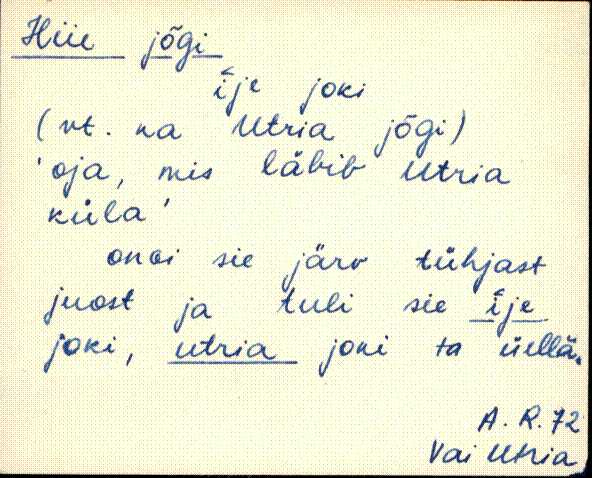 Hiie jõgi
íje joki
(vt. ka Utria jõgi)
'oja, mis läbib Utria
küla'
onoi sie järv tühjast
juost ja tuli sie íje
joki, utria joki ta üellä.
A. R. 72
Vai Utria